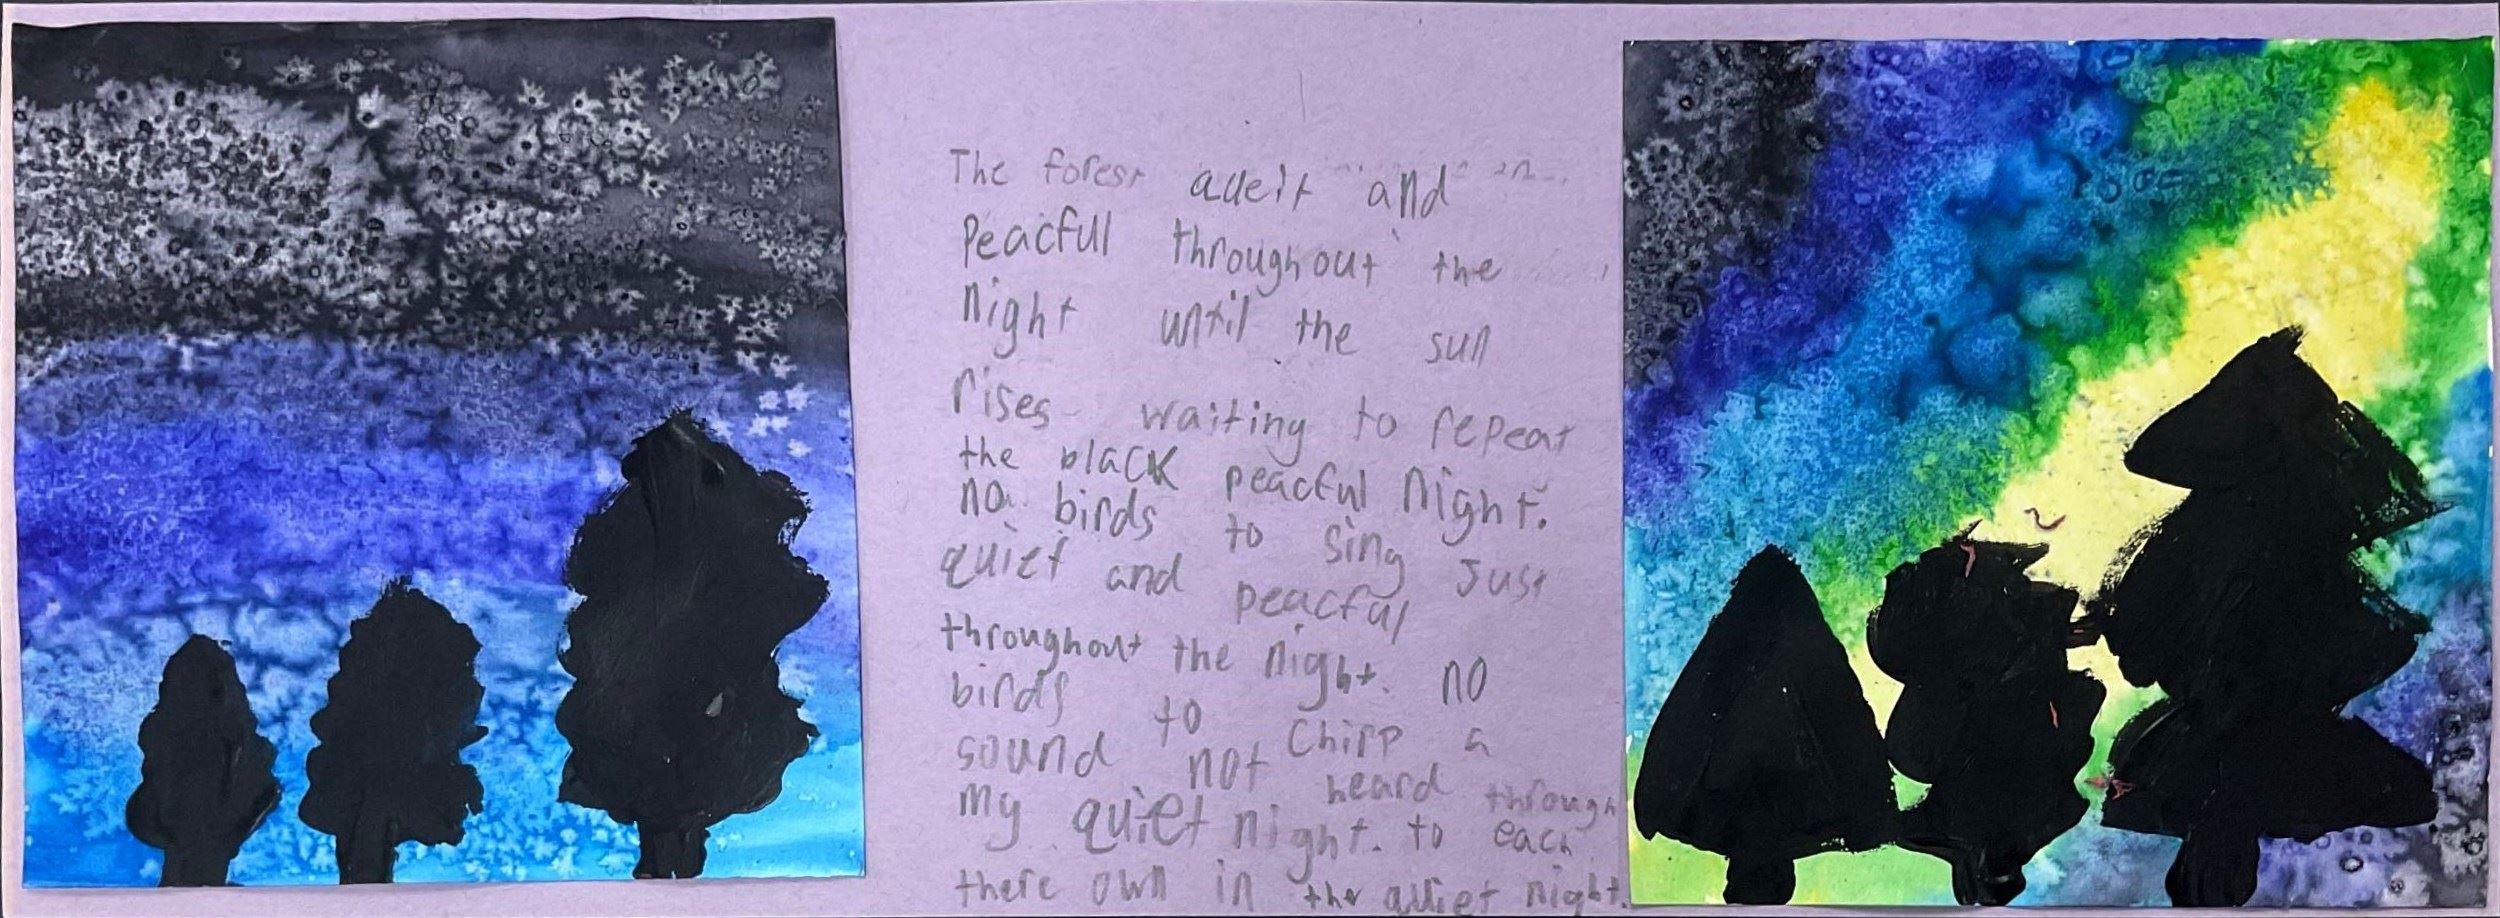 The forest queit and
Peacful throughout the
night until the sun
rises waiting to repeat
the black peacful night.
no birds to sing Just
quiet and peacful
throughout the night. no
birds to Chirp a
sound not heard through
my quiet night. to each
there own in the quiet night.